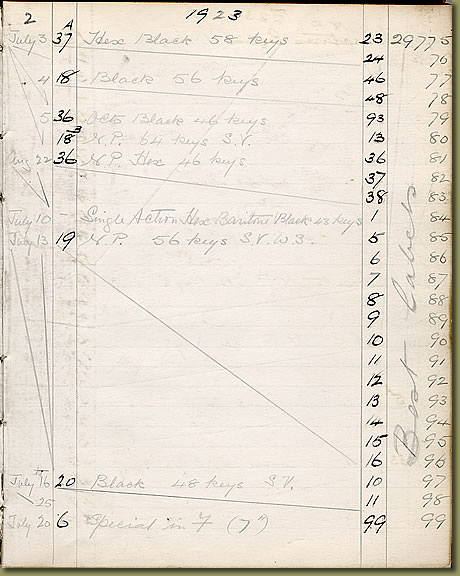 2 1923
A
July 3 37 Hex Black 58 keys 23 29775
24 76
4 18 Black 56 keys 46 77
48 78
5 36 Octo Black 46 keys 93 79
18 N.P. 64 keys S.V. 13 80
22 36 N.P. Hex 46 keys 36 81
37 82
38 83
July 10 - Single Action Hex Baritone Black 43 keys 1 84
July 13 19 N.P. 56 keys S.V.W.S. 5 85
6 86
7 87
8 88
9 89
10 90
11 91
12 92
13 93
14 94
15 95
16 96
July 16 20 Black 48 keys S.V. 10 97
25 11 98
July 20 6 Special in F (7") 99 99
Best Labels